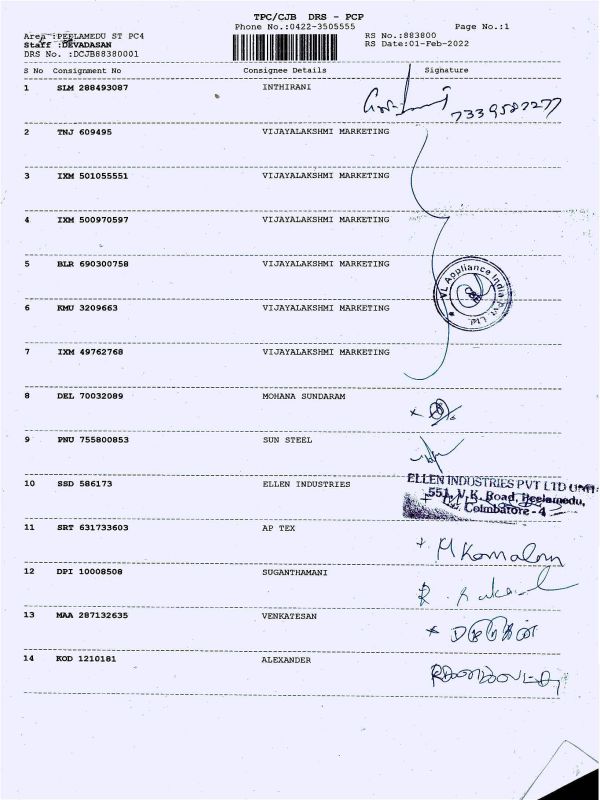 TPC/CJB DRS - PCP
Phone No.:0422-3505555 Page No.:1
Area :PEELAMEDU ST PC4 RS No.:883800
Staff :DEVADASAN RS Date:01-Feb-2022
DRS No. :DCJB88380001
S No Consignment No Consignee Details Signature
1 SLM 288493087 INTHIRANI
7339587277
2 TNJ 609495 VIJAYALAKSHMI MARKETING
3 IXM 501055551 VIJAYALAKSHMI MARKETING
4 IXM 500970597 VIJAYALAKSHMI MARKETING
5 BLR 690300758 VIJAYALAKSHMI MARKETING
VL Appliance India Pvt. Ltd.
6 KMU 3209663 VIJAYALAKSHMI MARKETING
7 IXM 49762768 VIJAYALAKSHMI MARKETING
8 DEL 70032089 MOHANA SUNDARAM
9 PNU 755800853 SUN STEEL
10 SSD 586173 ELLEN INDUSTRIES
ELLEN INDUSTRIES PVT LTD UNIT:
551, V.K. Road, Peelamedu,
Coimbatore - 4
11 SRT 631733603 AP TEX
12 DPI 10008508 SUGANTHAMANI
13 MAA 287132635 VENKATESAN
14 KOD 1210181 ALEXANDER